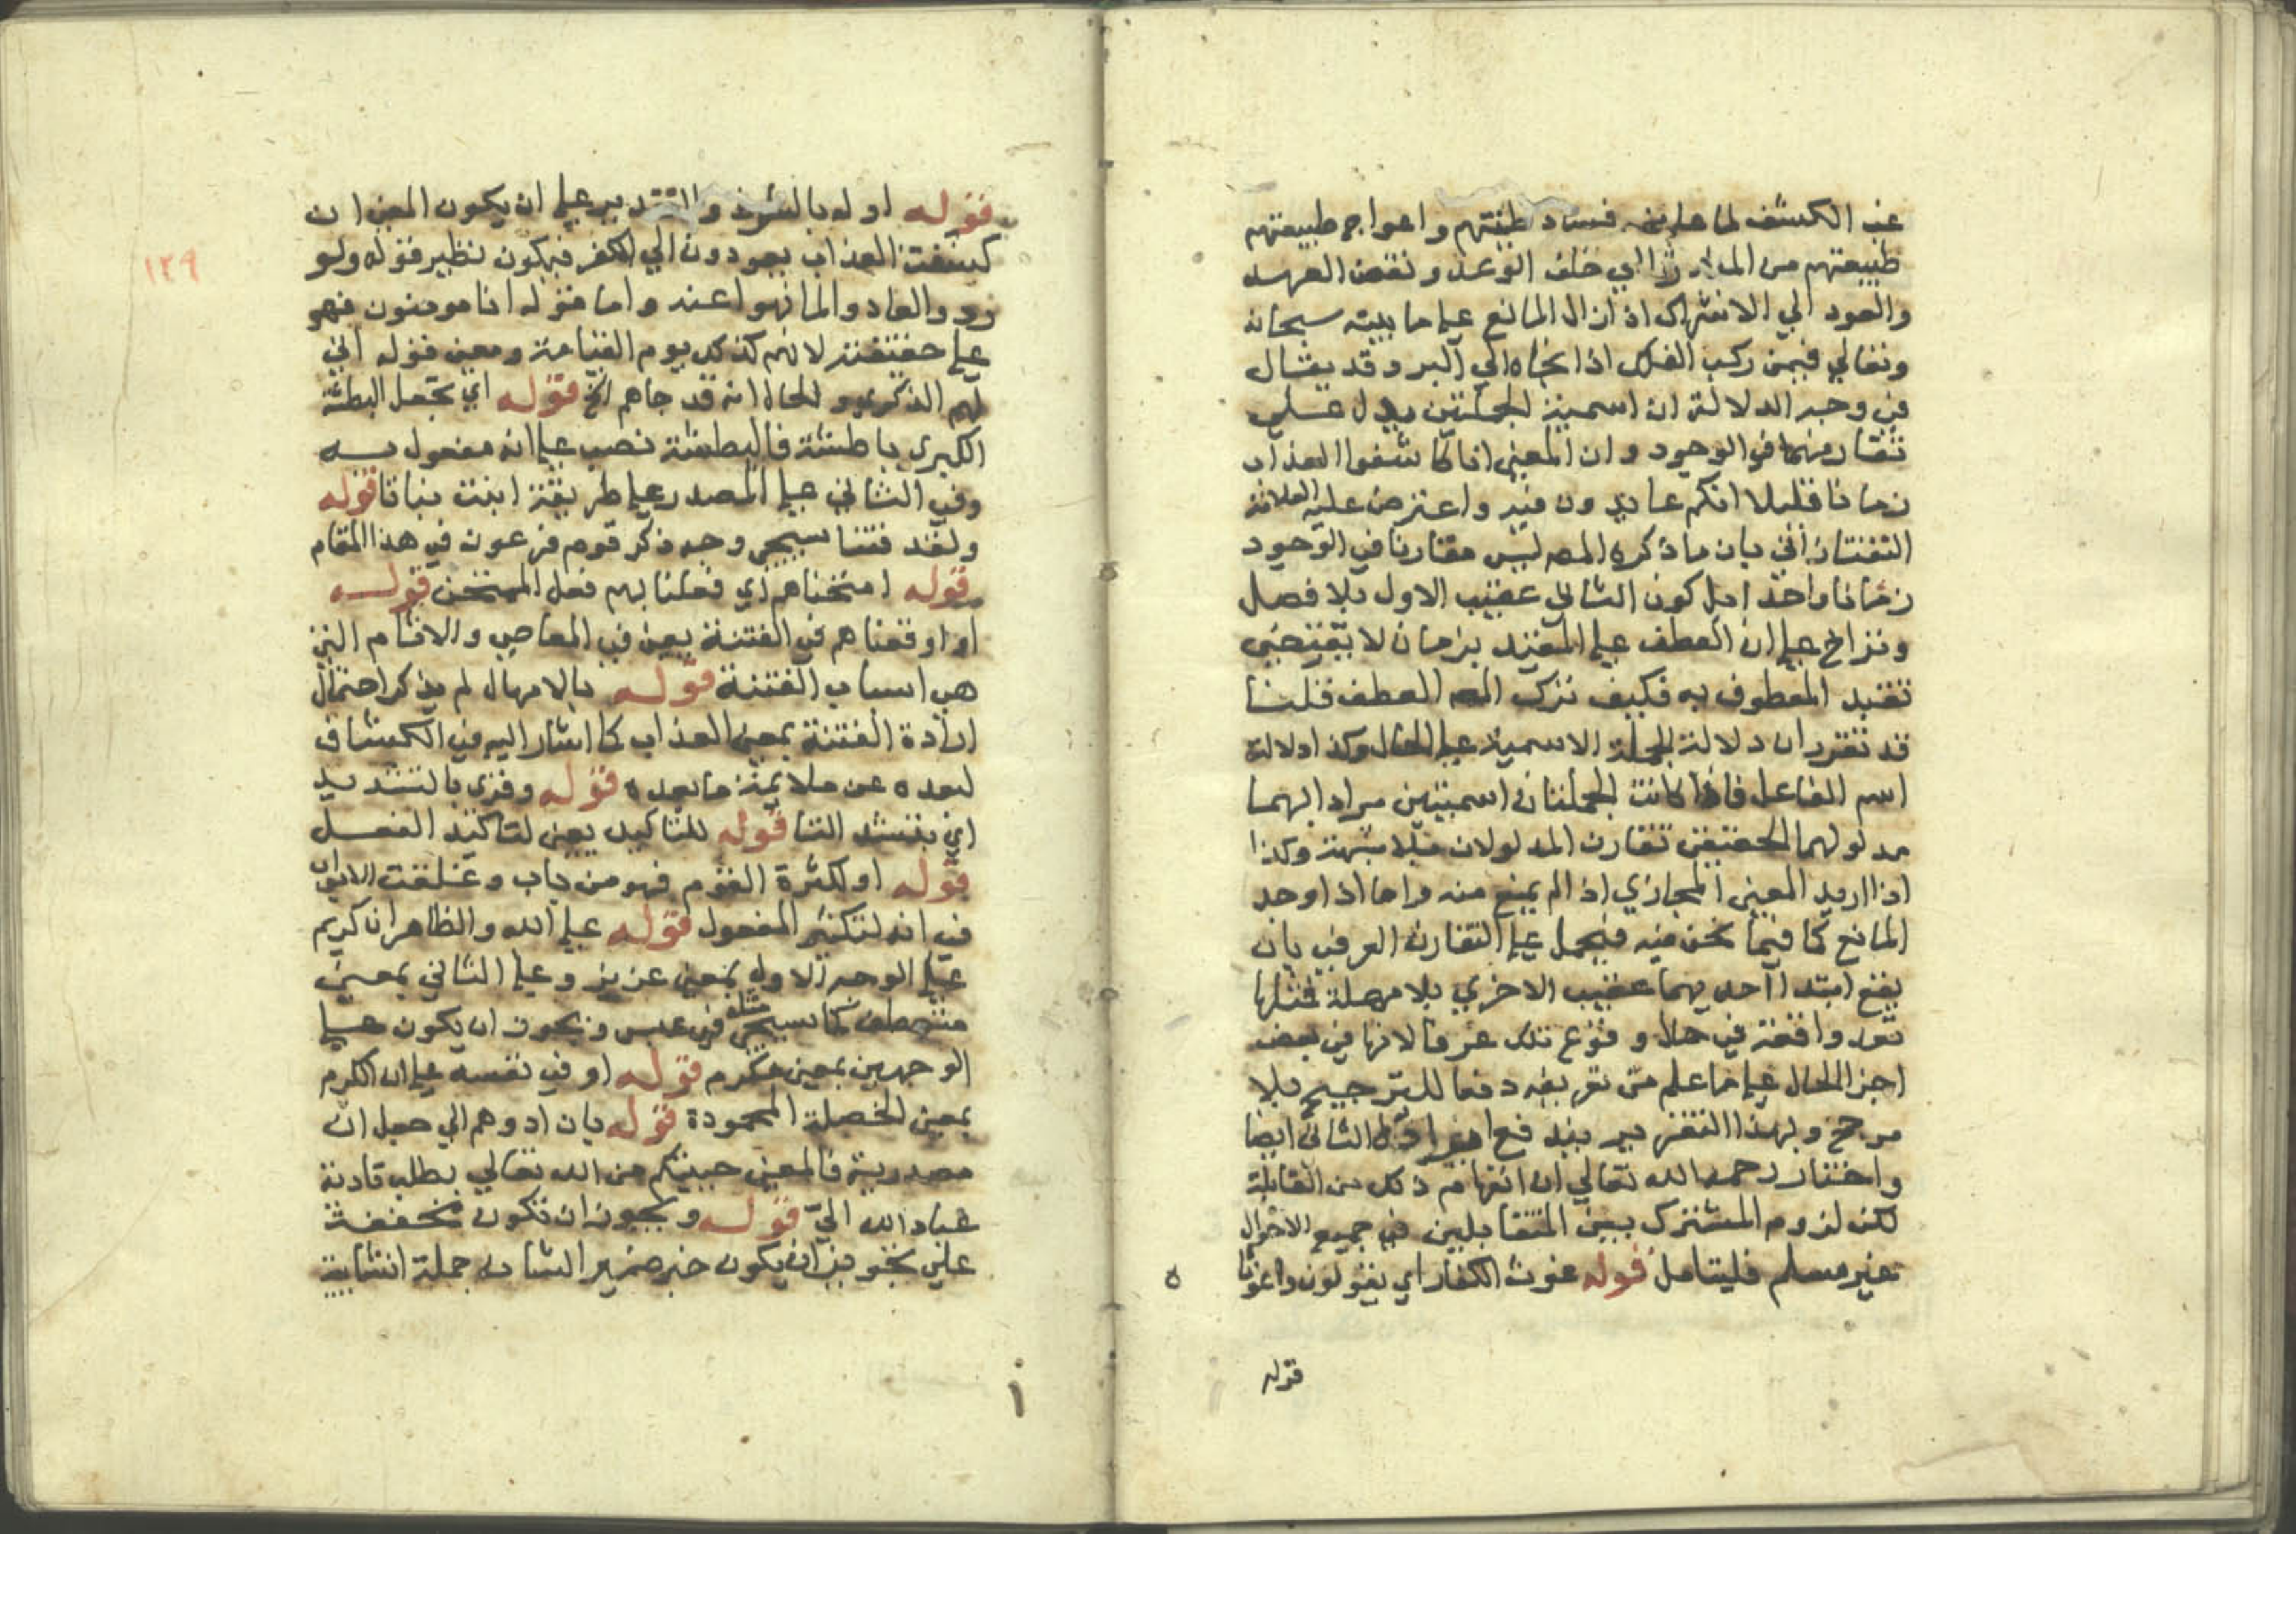 عند الكشف لما علم من فساد طينتهم واعواج طبيعتهم
طبيعتهم من المبادرة الي خلف الوعد ونقض العهد
والعود الي الاشراك اذ ازال المانع علي ما بينه سبحانه
وتعالي فيمن ركب الفلك اذا نجاه الي البر وقد يقال
في وجه الدلالة ان اسمية الجملتين يدل علي
تقارنهما في الوجود وان المعني انا كاشفوا العذاب
زمانا قليلا انكم عايدون فيه واعترض عليه العلامة
التفتازاني بان ما ذكره المص ليس مقارنا في الوجود
زمانا واحدا بل كون الثاني عقيب الاول بلا فصل
وتراخ علي ان العطف علي المقيد بزمان لا يقتضي
تقييد المعطوف به فكيف ترك العطف قلنا
قد تقرر ان دلالة الجملة الاسمية علي الحال وكذا دلالة
اسم الفاعل فاذا كانت الجملتان اسميتين مرادا بهما
مدلولهما الحقيقي تقارن المدلولان فلا شبهة وكذا
اذا اريد المعني المجازي اذ الم يمنع منه واما اذا وجد
المانع كما فيما نحن فيه فيحمل علي التقارن العرفي بان
يقع ابتدا احديهما عقيب الاخري بلا مهلة فمثلها
تعد واقعة في حال وقوع تلك عرفا لانها في بعض
اجزا الحال علي ما علم من تعريفه دفعا للترجيح بلا
مرجح وبهذا التقرير يندفع الثاني ايضا
واختار رحمه الله تعالي ان انفهام ذلك من المقابلة
لكن لزوم المشترك بين المتقابلين في جميع الاحوال
غير مسلم فليتامل قوله غوث الكفار اي يقولون واغوثا
قوله
١٣٩
قوله اوله بالشرط والتقدير علي ان يكون المعني ان
كشفت العذاب يعودون الي الكفر فيكون نظير قوله ولو
ردوا لعادوا لما نهوا عنه واما قوله انا مومنون فهو
علي حقيقته لانهم كذلك يوم القيامة ومعني قوله اني
لهم الذكري والحال انه قد جاهم الخ قوله اي نجعل البطشة
الكبري باطشة فالبطشة نصب علي انه مفعول به
وفي الثاني علي المصدر علي طريقة انبت نباتا قوله
ولقد فتنا سيجي وجه ذكر قوم فرعون في هذا المقام
قوله امتحناهم اي فعلنا بهم فعل الممتحن قوله
او اوقعناهم في الفتنة يعني في المعاصي والاثام التي
هي اسباب الفتنة قوله بالامهال لم يذكر احتمال
ارادة الفتنة بمعني العذاب كما اشار اليه في الكشاف
لبعده عن ملايمة ما بعده قوله وقري بالتشديد
اي بتشد التا قوله للتاكيد يعني لتاكيد الفعل
قوله او لكثرة القوم فهو من باب وغلقت الابواب
في انه لتكثير المفعول قوله علي الله والظاهر ان كريم
علي الوجه الاول بمعني عزيز وعلي الثاني بمعني
متعطف كما سيجي مثله في عبس ويجوز ان يكون علي
الوجهين بمعني مكرم قوله او في نفسه علي ان الكرم
بمعني الخصلة المحمودة قوله بان ادوهم الي جعل ان
مصدرية فالمعني جيتكم من الله تعالي بطلب تادية
عباد الله الي قوله ويجوز ان تكون مخففة
علي تجويز ان يكون خبر ضمير الشان جملة انشايية